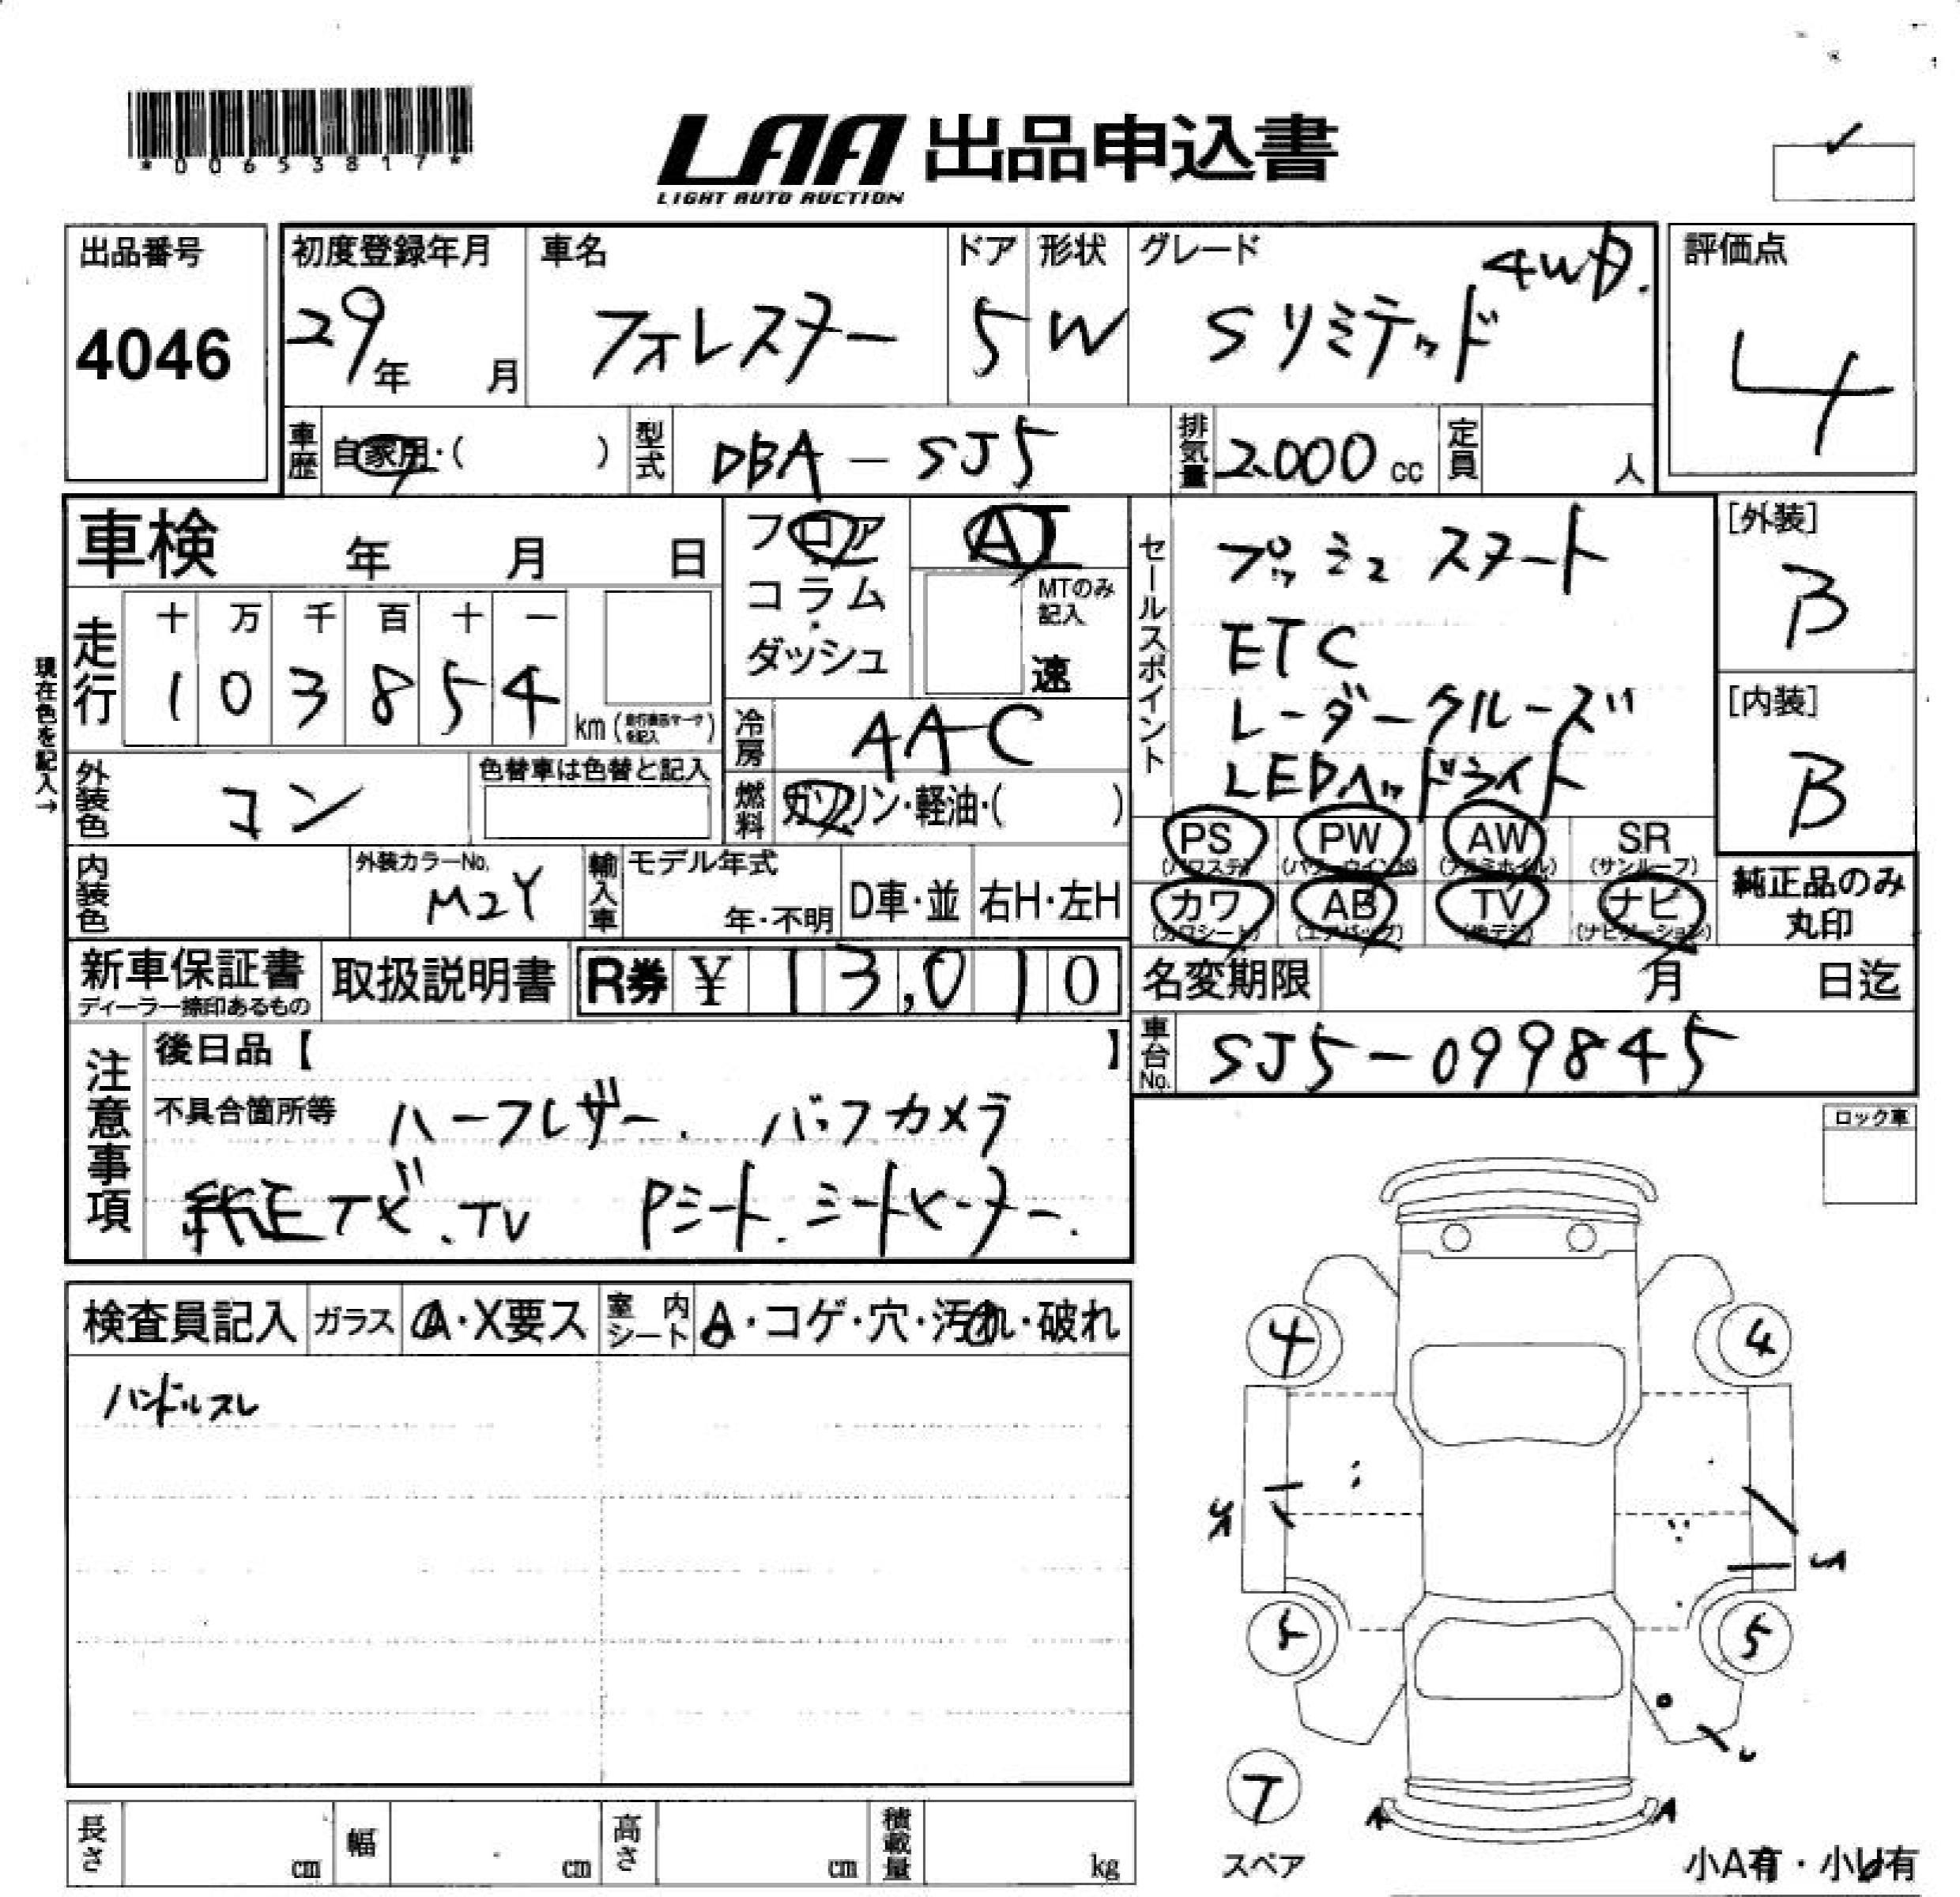 *00653817*
LAA 出品申込書
LIGHT AUTO AUCTION
出品番号
4046
初度登録年月
29年 月
車名
フォレスター
ドア
5
形状
W
グレード
4WD.
Sリミテッド
評価点
4
車歴 自家用・( )
型式 DBA-SJ5
排気量 2.000 cc
定員 人
車検 年 月 日
フロア
コラム
ダッシュ
AT
MTのみ記入
速
セールスポイント
プッシュスタート
ETC
レーダークルーズ
LEDヘッドライト
[外装]
B
[内装]
B
現在色を記入→
走行
十 万 千 百 十 一
1 0 3 8 5 4
km
冷房 AAC
燃料 ガソリン・軽油・( )
外装色 コン
色替車は色替と記入
PS PW AW SR
(パワステ) (パワーウインドウ) (アルミホイル) (サンルーフ)
カワ AB TV ナビ
(カワシート) (エアバッグ) (地デジ) (ナビゲーション)
純正品のみ
丸印
内装色
外装カラーNo.
M2Y
輸入車
モデル年式
年・不明
D車・並
右H・左H
新車保証書
ディーラー捺印あるもの
取扱説明書
R券 ¥ 13,010
名変期限 月 日迄
車台No. SJ5-099845
注意事項
後日品【 】
不具合箇所等 ハーフレザー. バックカメラ
純正ナビ.TV Pシート.シートヒーター.
ロック車
検査員記入
ガラス A・X要ス
室内シート A・コゲ・穴・汚れ・破れ
ハンドルスレ
4 4
5 5
A A
T
スペア
小A有・小U有
長さ cm
幅 cm
高さ cm
積載量 kg